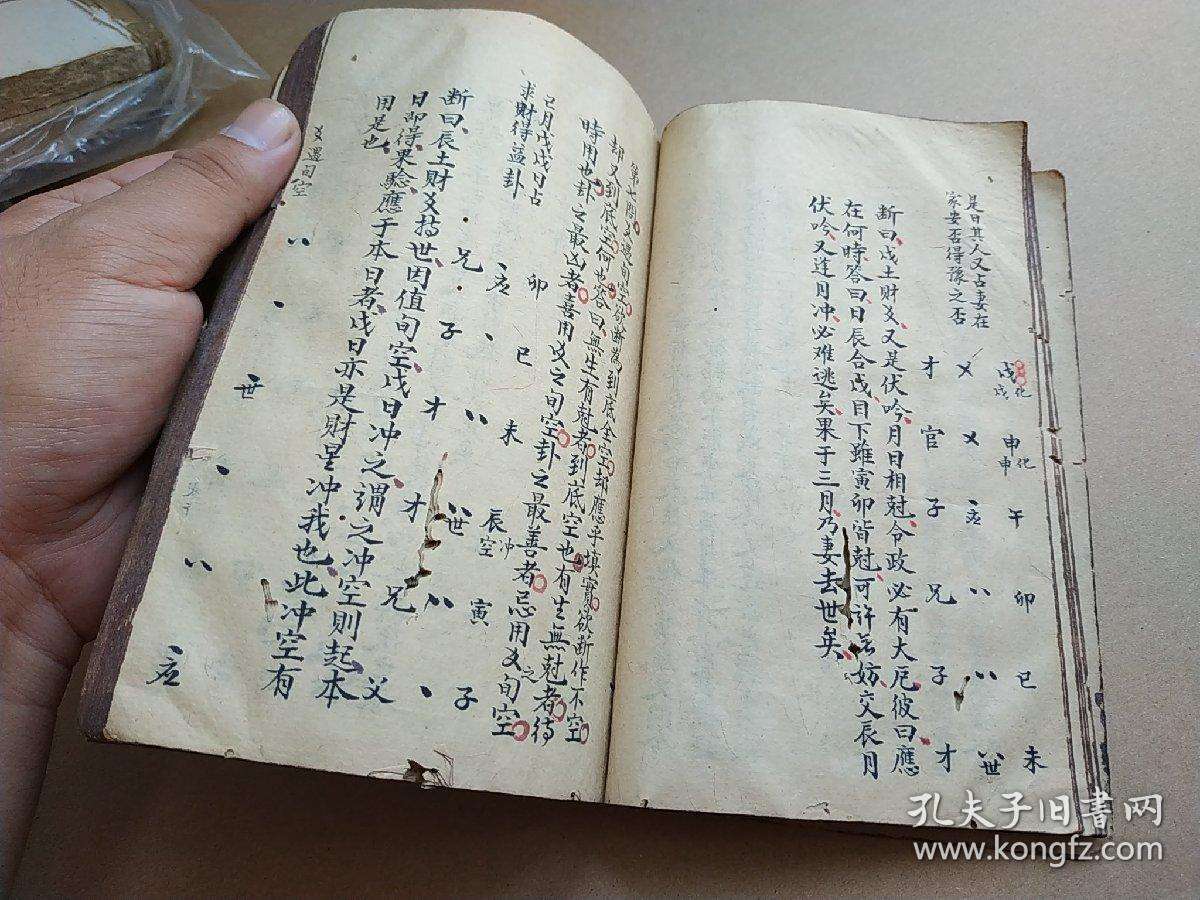 是日其人又占妻在
家安否得豫之否
才 乂 戌化戌
官 乂 申化申
子 应 午
兄 卯
子 巳
才 世 未
断曰、戌土財爻、又是伏吟、月日相尅、令政必有大厄、彼曰應
在何時、答曰、日辰合戌、目下雖寅卯皆尅、可許無妨、交辰月
伏吟、又逢月冲、必难逃矣、果于三月、乃妻去世矣、
第七問爻遇旬空有断為到底全空却應乎填實欲断作不空
却又到底空何也答曰無生有尅者到底空也有生無尅者待
時用也卦之最凶者喜用爻之旬空卦之最善者忌用爻之旬空
巳月戊戌日占
求財得益卦
兄 应 卯
子 巳
才 未
才 世 辰冲空
兄 寅
父 子
断曰、辰土財爻持世、因值旬空、戌日冲之、謂之冲空則起、本
日即得、果驗、應于本日者、戌日亦是財星冲我也、此冲空有
用是也、
爻遇旬空
世
应
孔夫子旧書网
www.kongfz.com